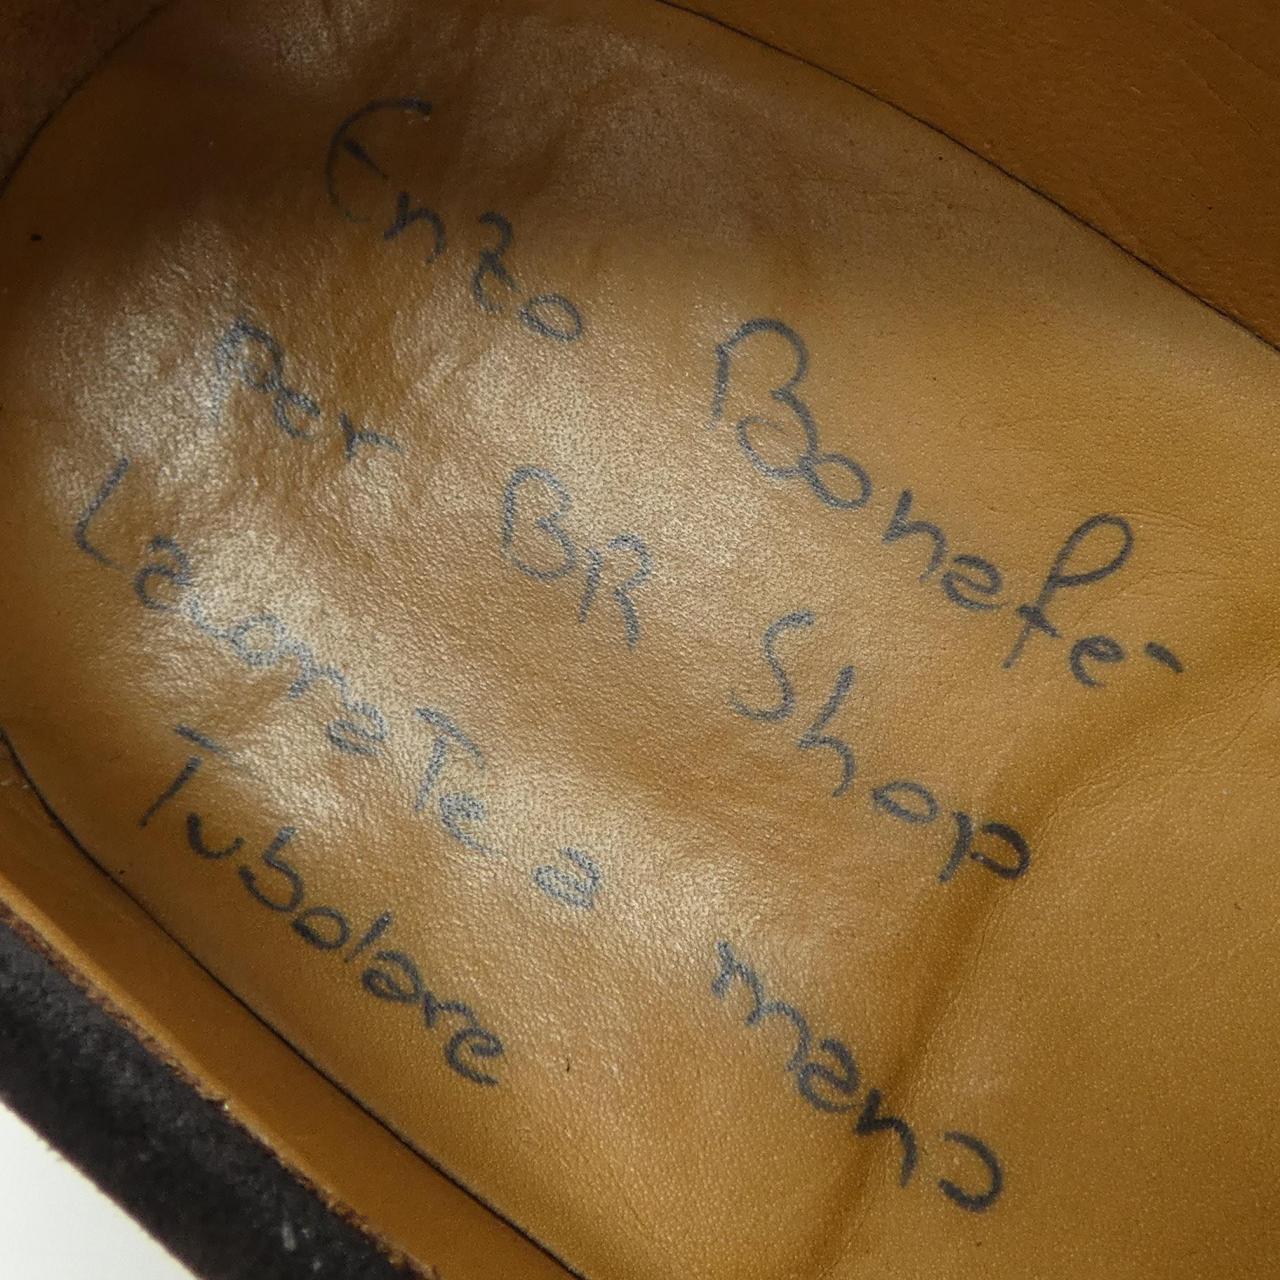 Enzo Bonafè
per BR Shop
Lavorate a mano
Tubolare